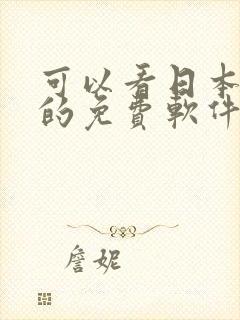 可以看日本
的免費軟件
詹妮